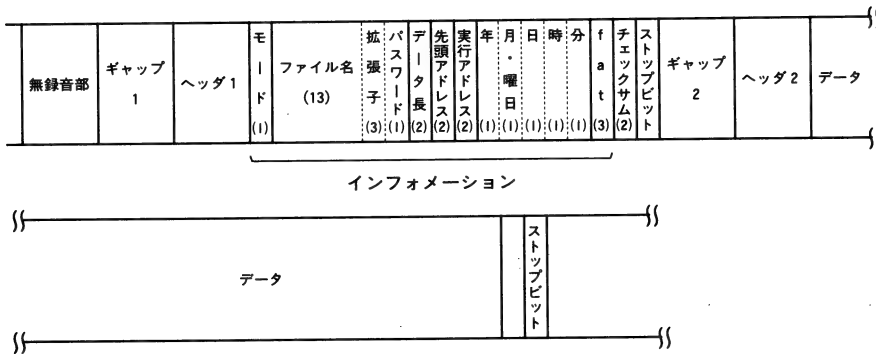 無録音部
ギャップ
1
ヘッダ1
モード
(1)
ファイル名
(13)
拡張子
(3)
パスワード
(1)
データ長
(2)
先頭アドレス
(2)
実行アドレス
(2)
年
(1)
月・曜日
(1)
日
(1)
時
(1)
分
(1)
fat
(3)
チェックサム
(2)
ストップビット
ギャップ
2
ヘッダ2
データ
インフォメーション
データ
ストップビット